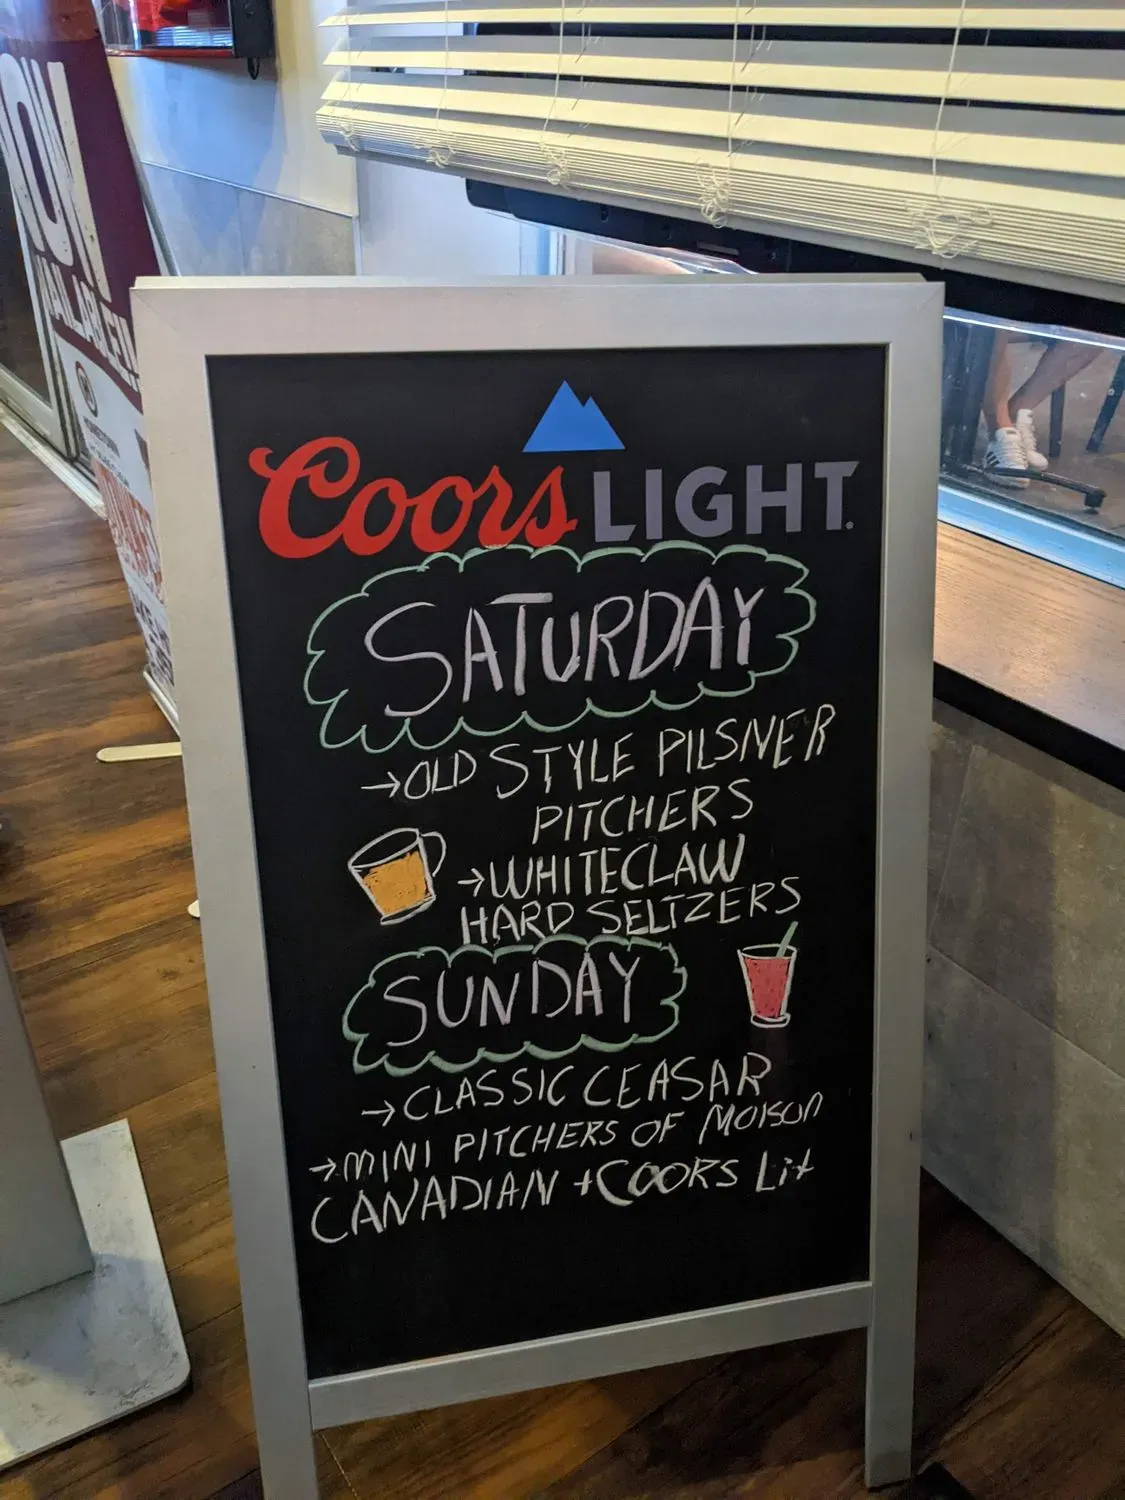 AVAILABLE!!
Coors LIGHT.
SATURDAY
→OLD STYLE PILSNER
PITCHERS
→WHITECLAW
HARD SELTZERS
SUNDAY
→CLASSIC CEASAR
→MINI PITCHERS OF MOLSON
CANADIAN + COORS Lit